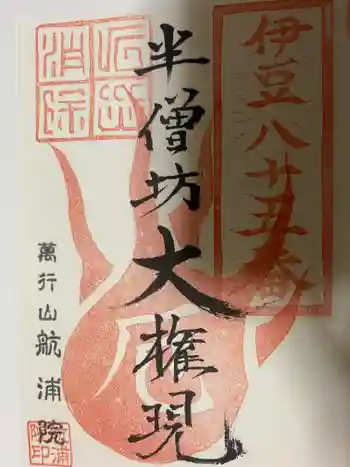 伊豆八十五番
半僧坊大権現
萬行山航浦院